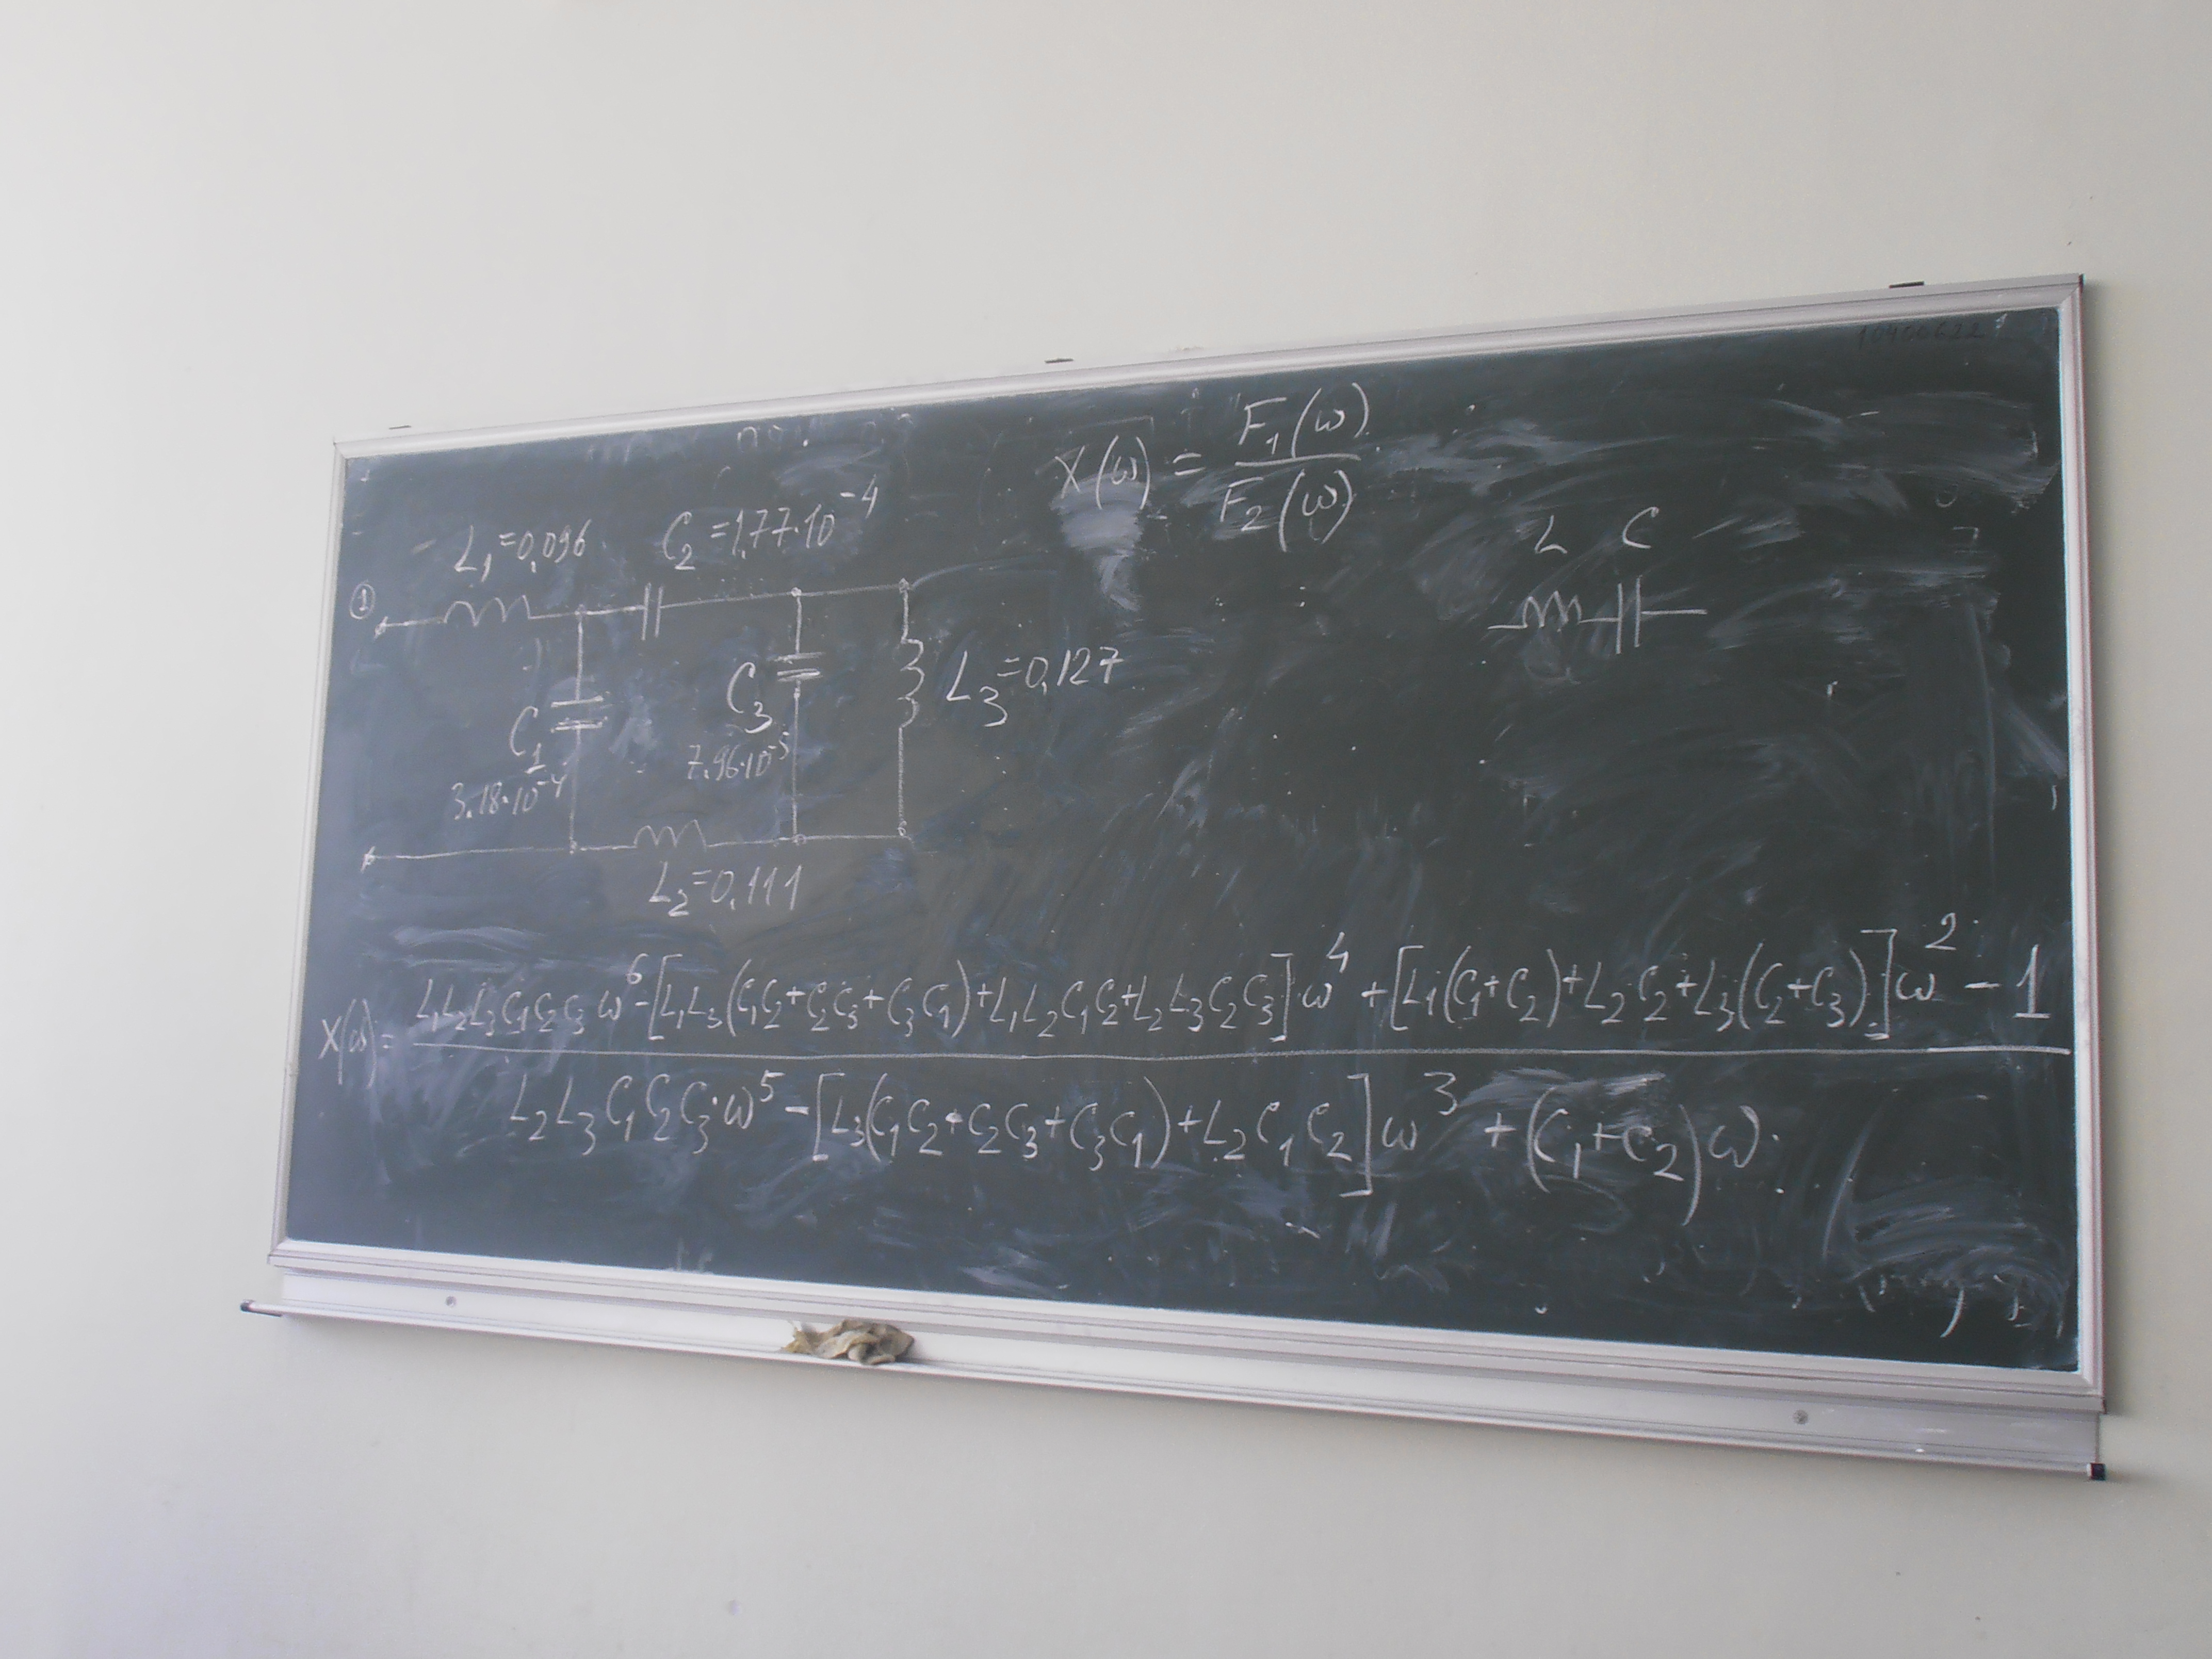 X(ω) = F₁(ω) / F₂(ω)
L₁=0,096 C₂=1,77·10⁻⁴
L C
①
C₃ L₃=0,127
7.96·10⁻⁵
C₁
3.18·10⁻⁴
L₂=0,111
X(ω)= L₁L₂L₃C₁C₂C₃ω⁶-[L₁L₃(C₁C₂+C₂C₃+C₃C₁)+L₁L₂C₁C₂+L₂L₃C₂C₃]·ω⁴+[L₁(C₁+C₂)+L₂C₂+L₃(C₂+C₃)]ω²-1
L₂L₃C₁C₂C₃·ω⁵-[L₃(C₁C₂+C₂C₃+C₃C₁)+L₂C₁C₂]ω³+(C₁+C₂)ω.